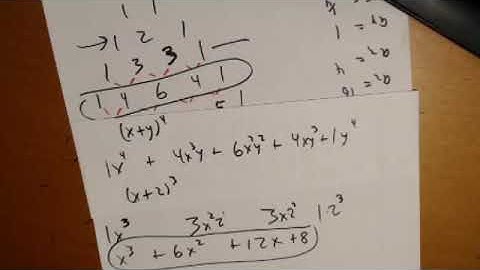 1 1
→ 1 2 1
1 3 3 1
1 4 6 4 1
5 1
(x+y)⁴
1x⁴ + 4x³y + 6x²y² + 4xy³ + 1y⁴
(x+2)³
1x³ 3x²2 3x2² 1 2³
x³ + 6x² + 12x + 8
a₁ = 1
a₂ = 4